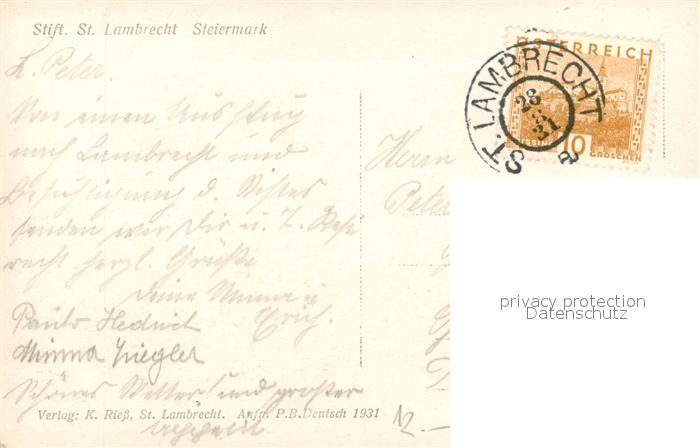 Stift. St. Lambrecht Steiermark
L. Peter.
Von einem Ausflug
nach Lambrecht und
Besichtigung d. Stiftes
senden wir Dir u. T.
recht herzl. Grüße
Deine Minna u.
Erich.
Paula
Minna Ziegler
Schönes Wetter und großer
Verlag: K. Rieß, St. Lambrecht. Aufn. P.B. Deutsch 1931
Herrn
Peter
ÖSTERREICH
10
GROSCHEN
ST. LAMBRECHT
28
31
a
privacy protection
Datenschutz
12.–